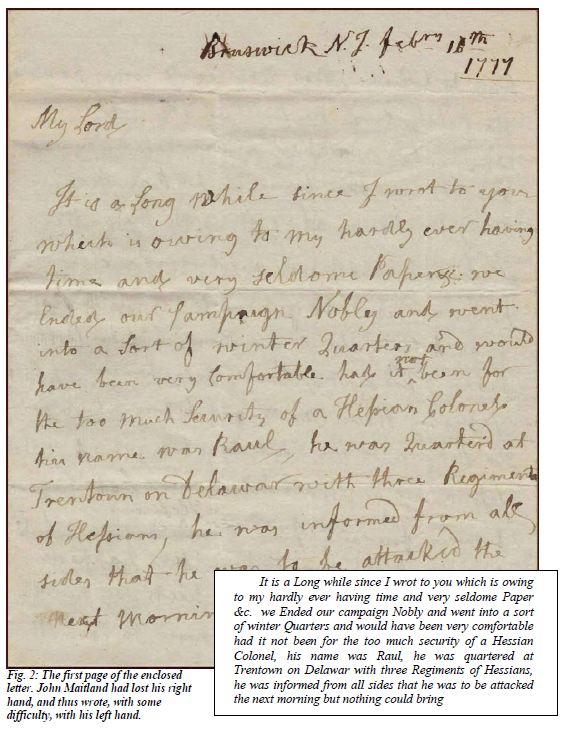 Brunswick N.J. febry 16th
1777
My Lord
It is a Long while since I wrot to you
which is owing to my hardly ever having
time and very seldome Paper &c. we
Ended our Campaign Nobly and went
into a Sort of winter Quarters, and would
have been very Comfortable had it not been for
the too much Security of a Hessian Colonel,
his name was Raul, he was Quarterd at
Trentown on Delawar with three Regiments
of Hessians, he was informed from all
sides that he was to be attacked the
Next Mornin
It is a Long while since I wrot to you which is owing
to my hardly ever having time and very seldome Paper
&c. we Ended our campaign Nobly and went into a sort
of winter Quarters and would have been very comfortable
had it not been for the too much security of a Hessian
Colonel, his name was Raul, he was quartered at
Trentown on Delawar with three Regiments of Hessians,
he was informed from all sides that he was to be attacked
the next morning but nothing could bring
Fig. 2: The first page of the enclosed
letter. John Maitland had lost his right
hand, and thus wrote, with some
difficulty, with his left hand.